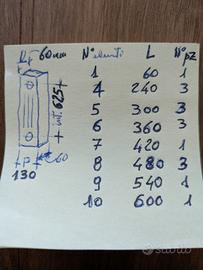 60mm N° elementi L N° pz
1 60 1
4 240 3
5 300 3
6 360 3
7 420 1
8 480 3
9 540 1
10 600 1
int. 625
P 60
130
subito